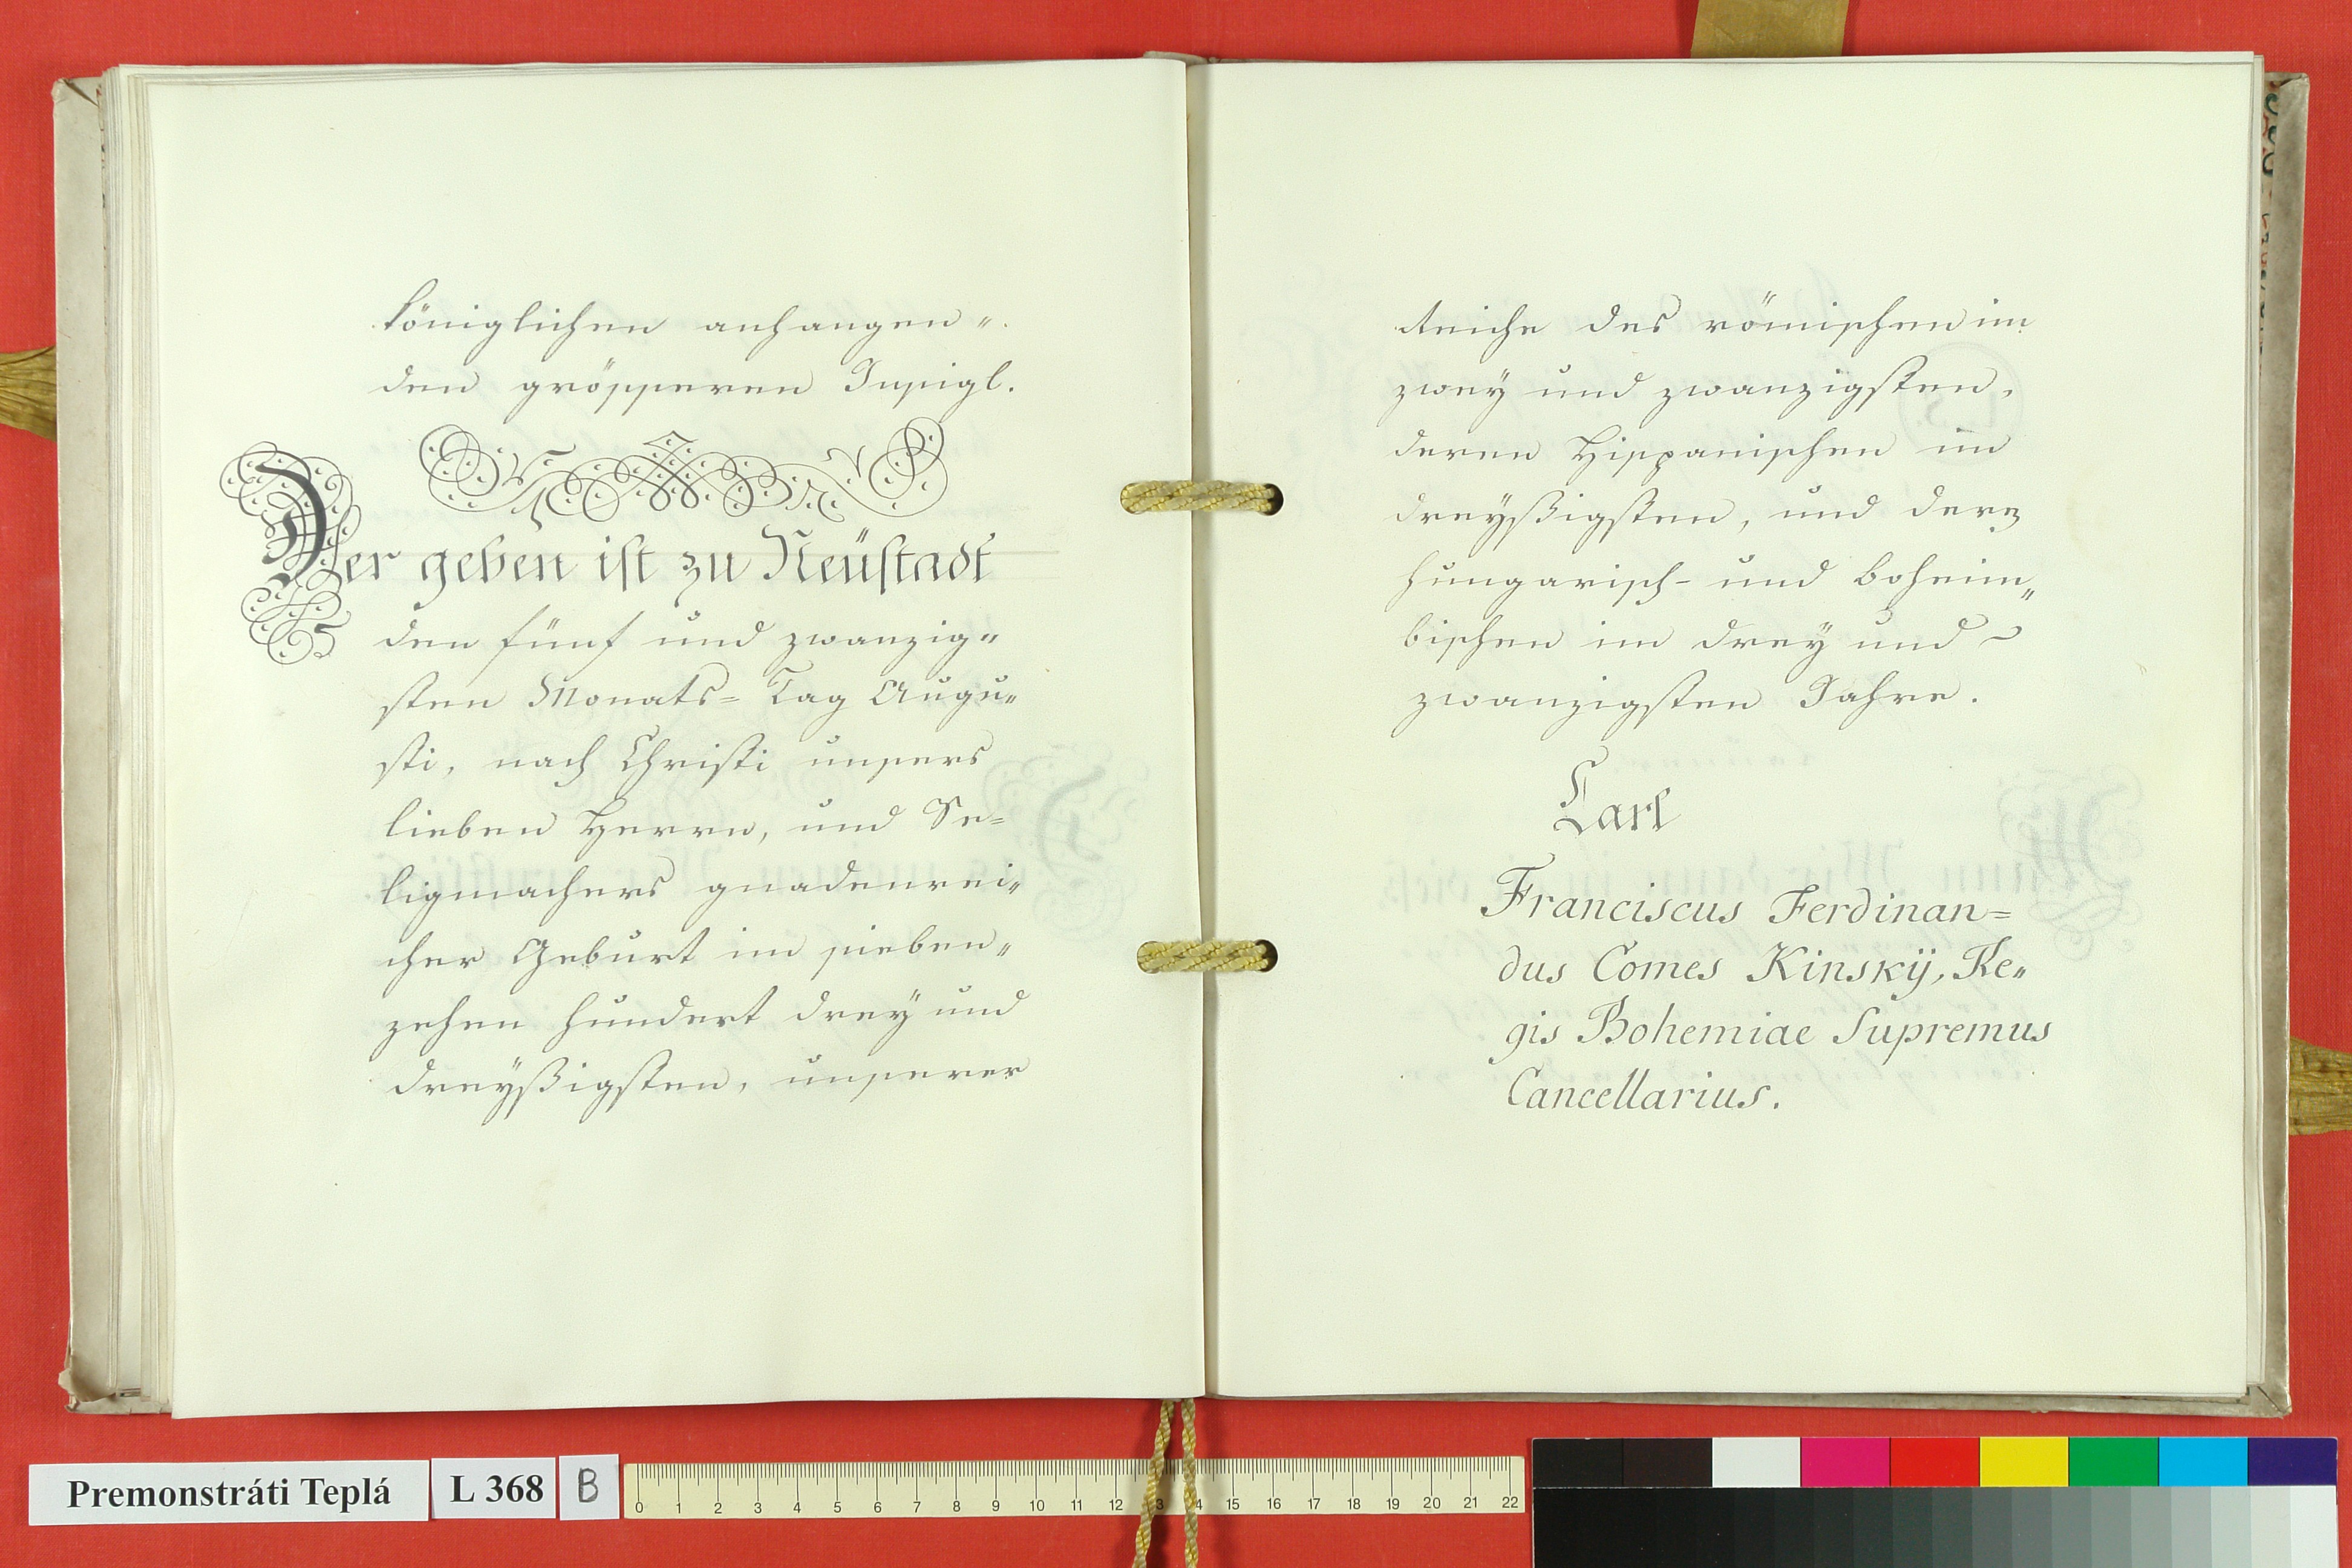 königlichen anhangen„
den grösseren Insigl.
Der geben ist zu Neüstadt
den fünf und zwanzig„
sten Monats= Tag Augu„
sti, nach Christi unsers
lieben Herrn, und Se=
ligmachers gnadenrei„
cher Geburt im sieben„
zehen hundert drey und
dreyßigsten, unserer
Reiche des römischen im
zwey und zwanzigsten,
deren Hispanischen im
dreyßigsten, und deren
hungarisch- und boheim„
bischen im drey und
zwanzigsten Jahre.
Carl
Franciscus Ferdinan=
dus Comes Kinskÿ, Re„
gis Bohemiae Supremus
Cancellarius.
Premonstráti Teplá L 368 B
0 1 2 3 4 5 6 7 8 9 10 11 12 3 4 15 16 17 18 19 20 21 22